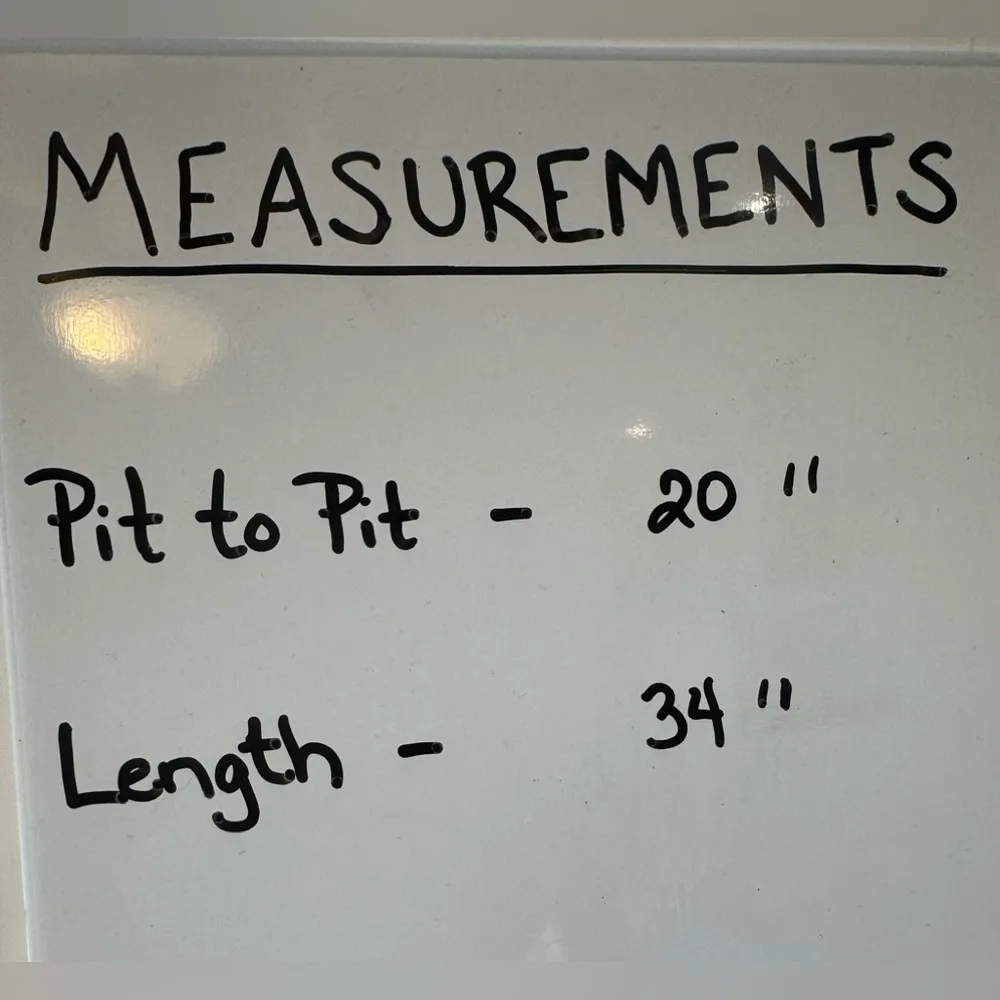 MEASUREMENTS
Pit to Pit - 20 "
Length - 34 "